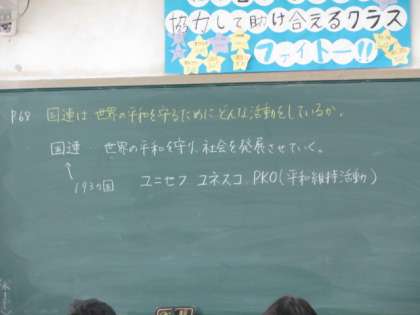 協力して助け合えるクラス
ファイトー!!
P.68 国連は世界の平和を守るためにどんな活動をしているか。
国連 世界の平和を守り、社会を発展させていく。
↑
193の国 ユニセフ ユネスコ PKO(平和維持活動)